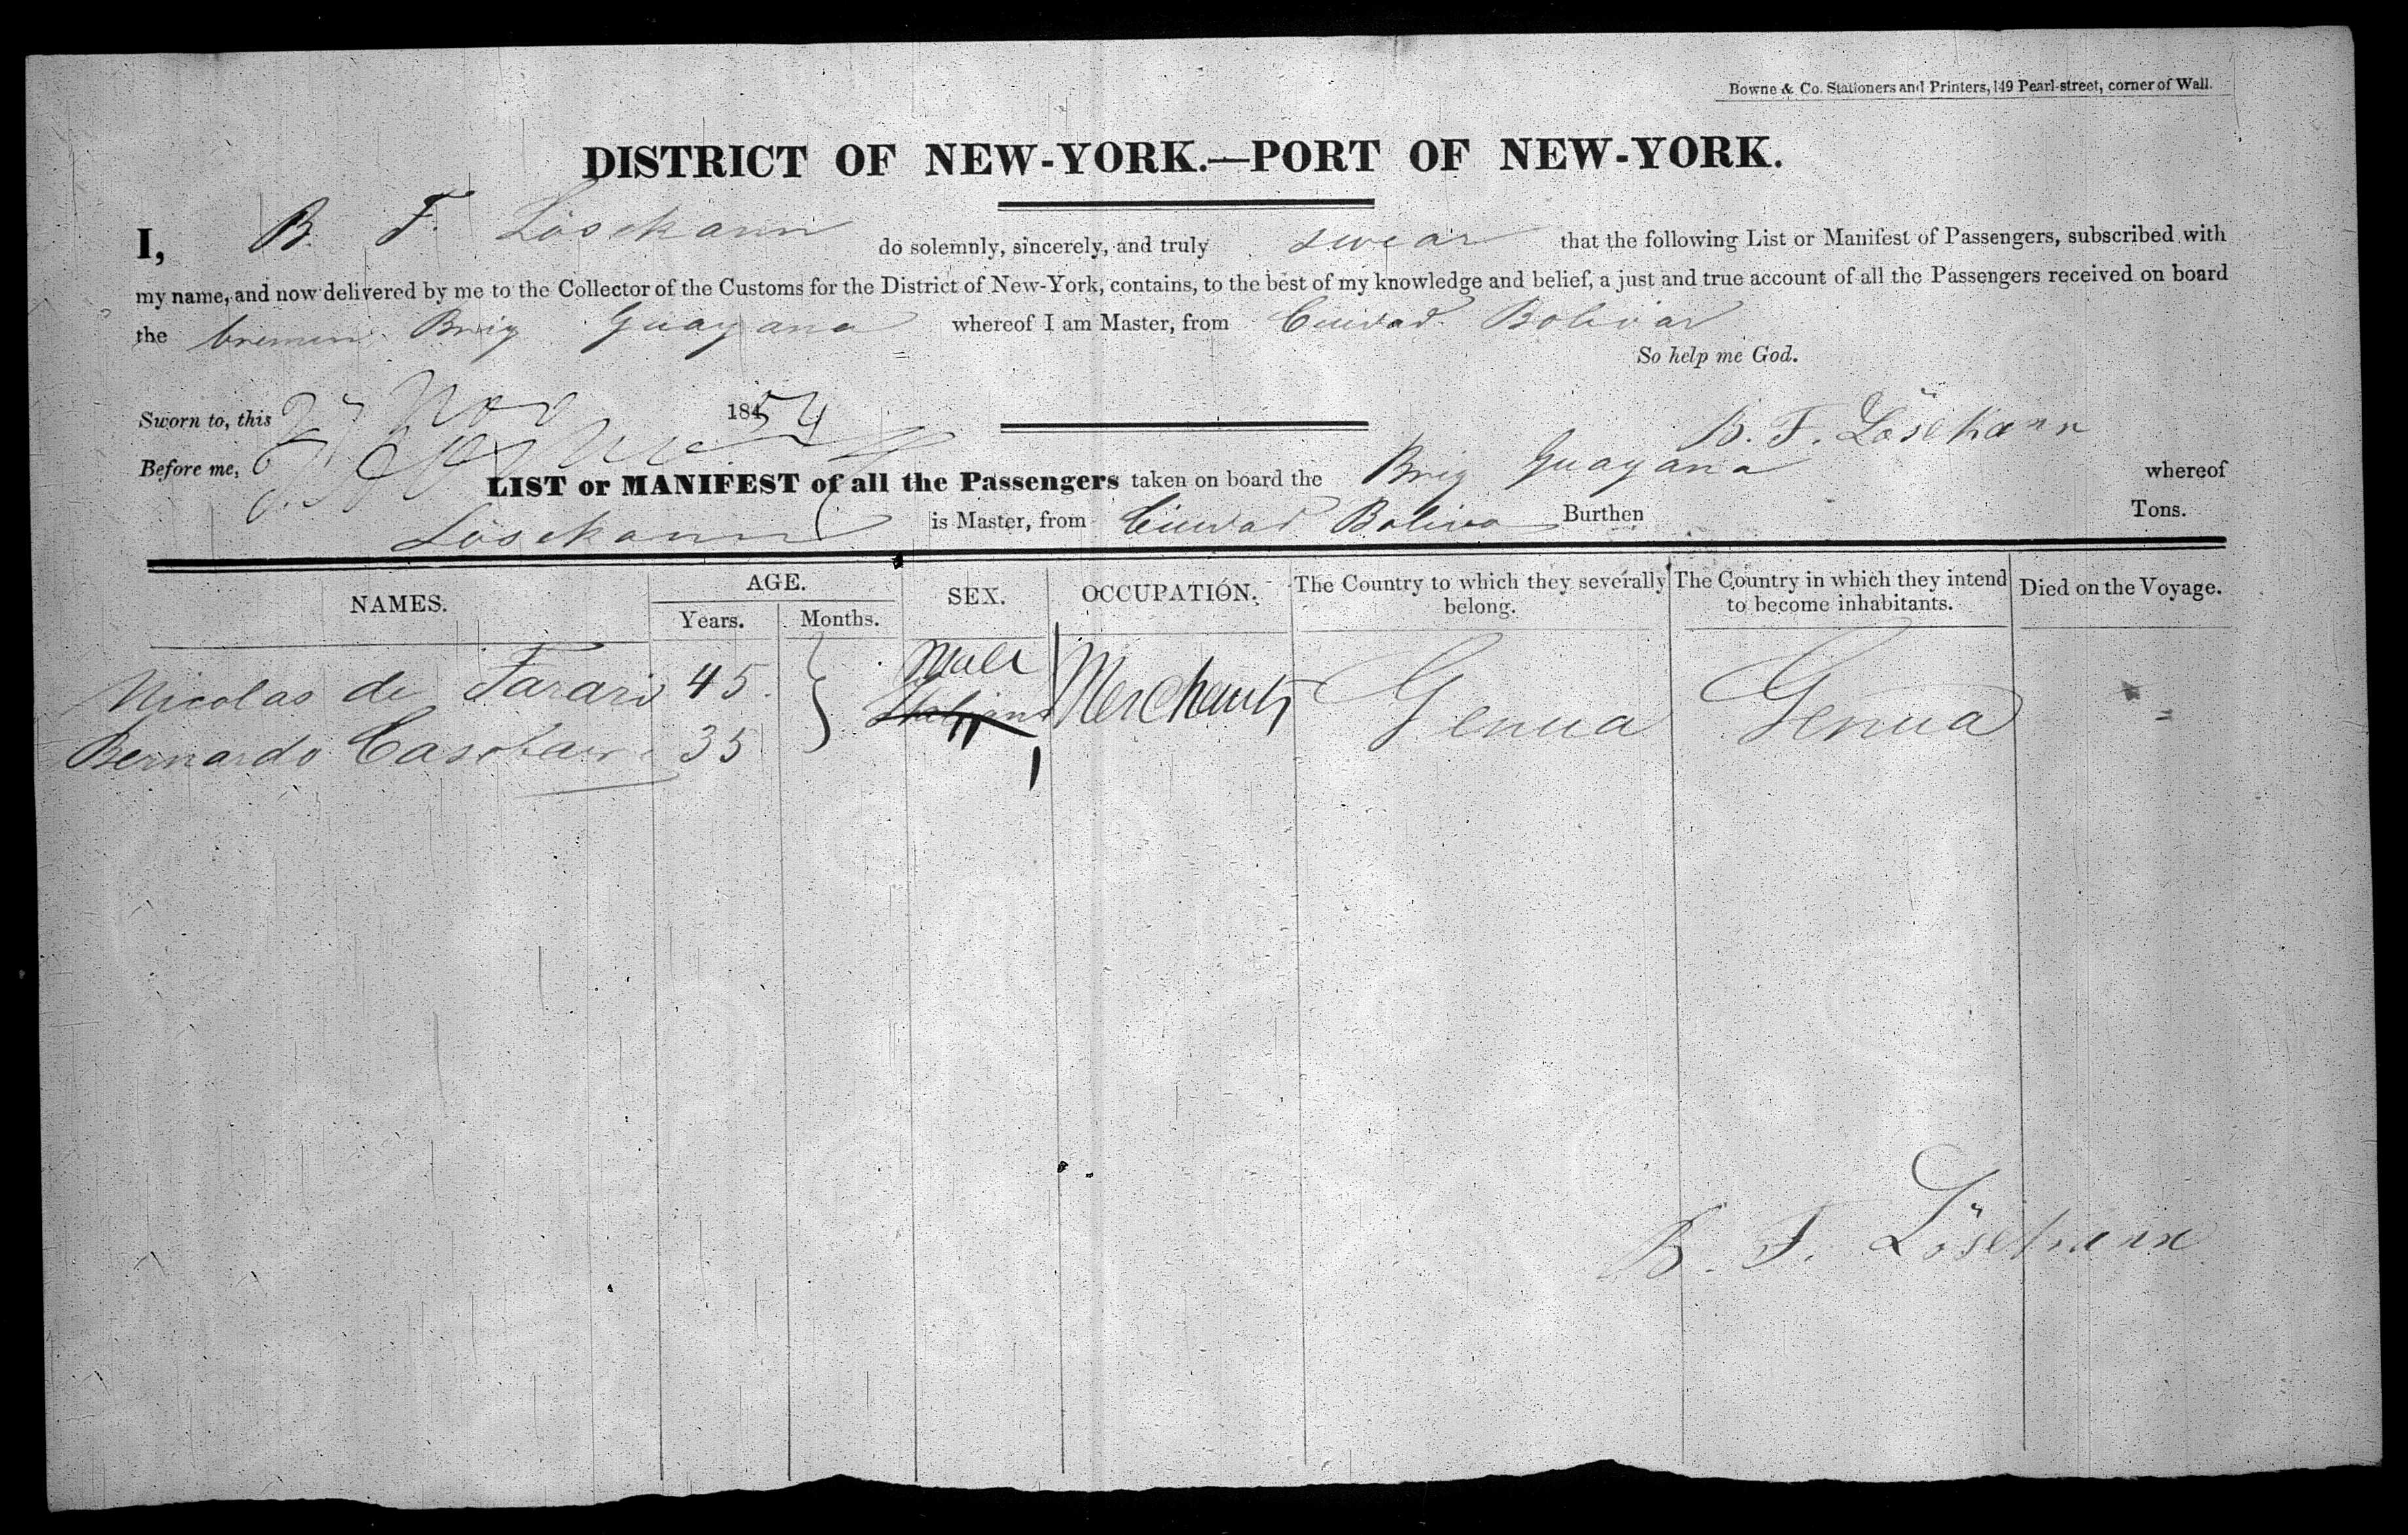 Bowne & Co. Stationers and Printers, 149 Pearl-street, corner of Wall.
DISTRICT OF NEW-YORK.—PORT OF NEW-YORK.
I, B. F. Lösekann do solemnly, sincerely, and truly swear that the following List or Manifest of Passengers, subscribed with
my name, and now delivered by me to the Collector of the Customs for the District of New-York, contains, to the best of my knowledge and belief, a just and true account of all the Passengers received on board
the bremen Brig Guayana whereof I am Master, from Ciudad Bolivar
So help me God.
Sworn to, this 27 Nov 1854
B. F. Lösekann
Before me,
LIST or MANIFEST of all the Passengers taken on board the Brig Guayana whereof
Lösekann is Master, from Ciudad Boliva Burthen Tons.
NAMES. AGE. SEX. OCCUPATION. The Country to which they severally belong. The Country in which they intend to become inhabitants. Died on the Voyage.
Years. Months.
Nicolas de 45 Male Merchants Genua Genua
Bernardo 35
B. F. Lösekann